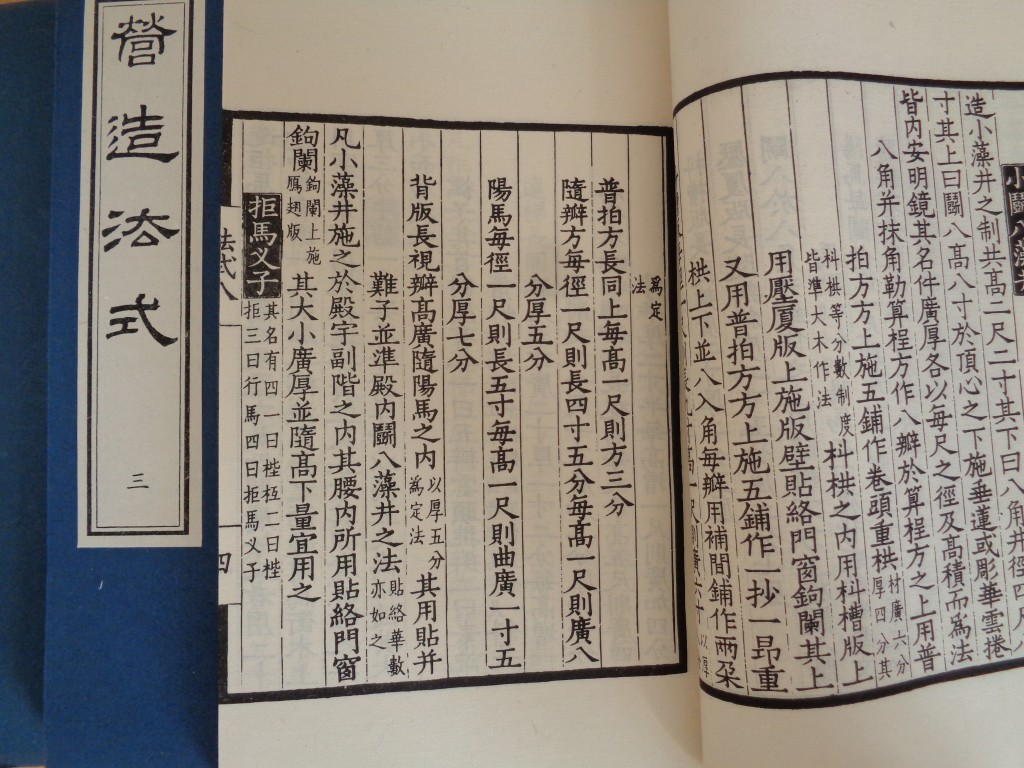 營造法式
三
小鬬八藻
造小藻井之制共高二尺二寸其下曰八角井徑四尺八
寸其上曰鬬八高八寸於頂心之下施垂蓮或彫華雲捲
皆内安明鏡其名件廣厚各以每尺之徑及高積而爲法
八角并抹角勒算程方作八瓣於算程方之上用普
拍方方上施五鋪作卷頭重栱材廣六分厚四分其
枓栱等分數制度皆準大木作法枓栱之内用枓槽版上
用壓厦版上施版壁貼絡門窗鉤闌其上
又用普拍方方上施五鋪作一抄一昻重
栱上下並八入角每瓣用補間鋪作兩朶
爲定法
普拍方長同上每髙一尺則方三分
隨瓣方每徑一尺則長四寸五分每髙一尺則廣八
分厚五分
陽馬每徑一尺則長五寸每髙一尺則曲廣一寸五
分厚七分
背版長視瓣髙廣隨陽馬之内以厚五分爲定法其用貼并
難子並準殿内鬭八藻井之法貼絡華數亦如之
凡小藻井施之於殿宇副階之内其腰内所用貼絡門窗
鉤闌鉤闌上施鴈翅版其大小廣厚並隨髙下量宜用之
拒馬义子其名有四一曰梐枑二曰梐拒三曰行馬四曰拒馬义子
法式八
四